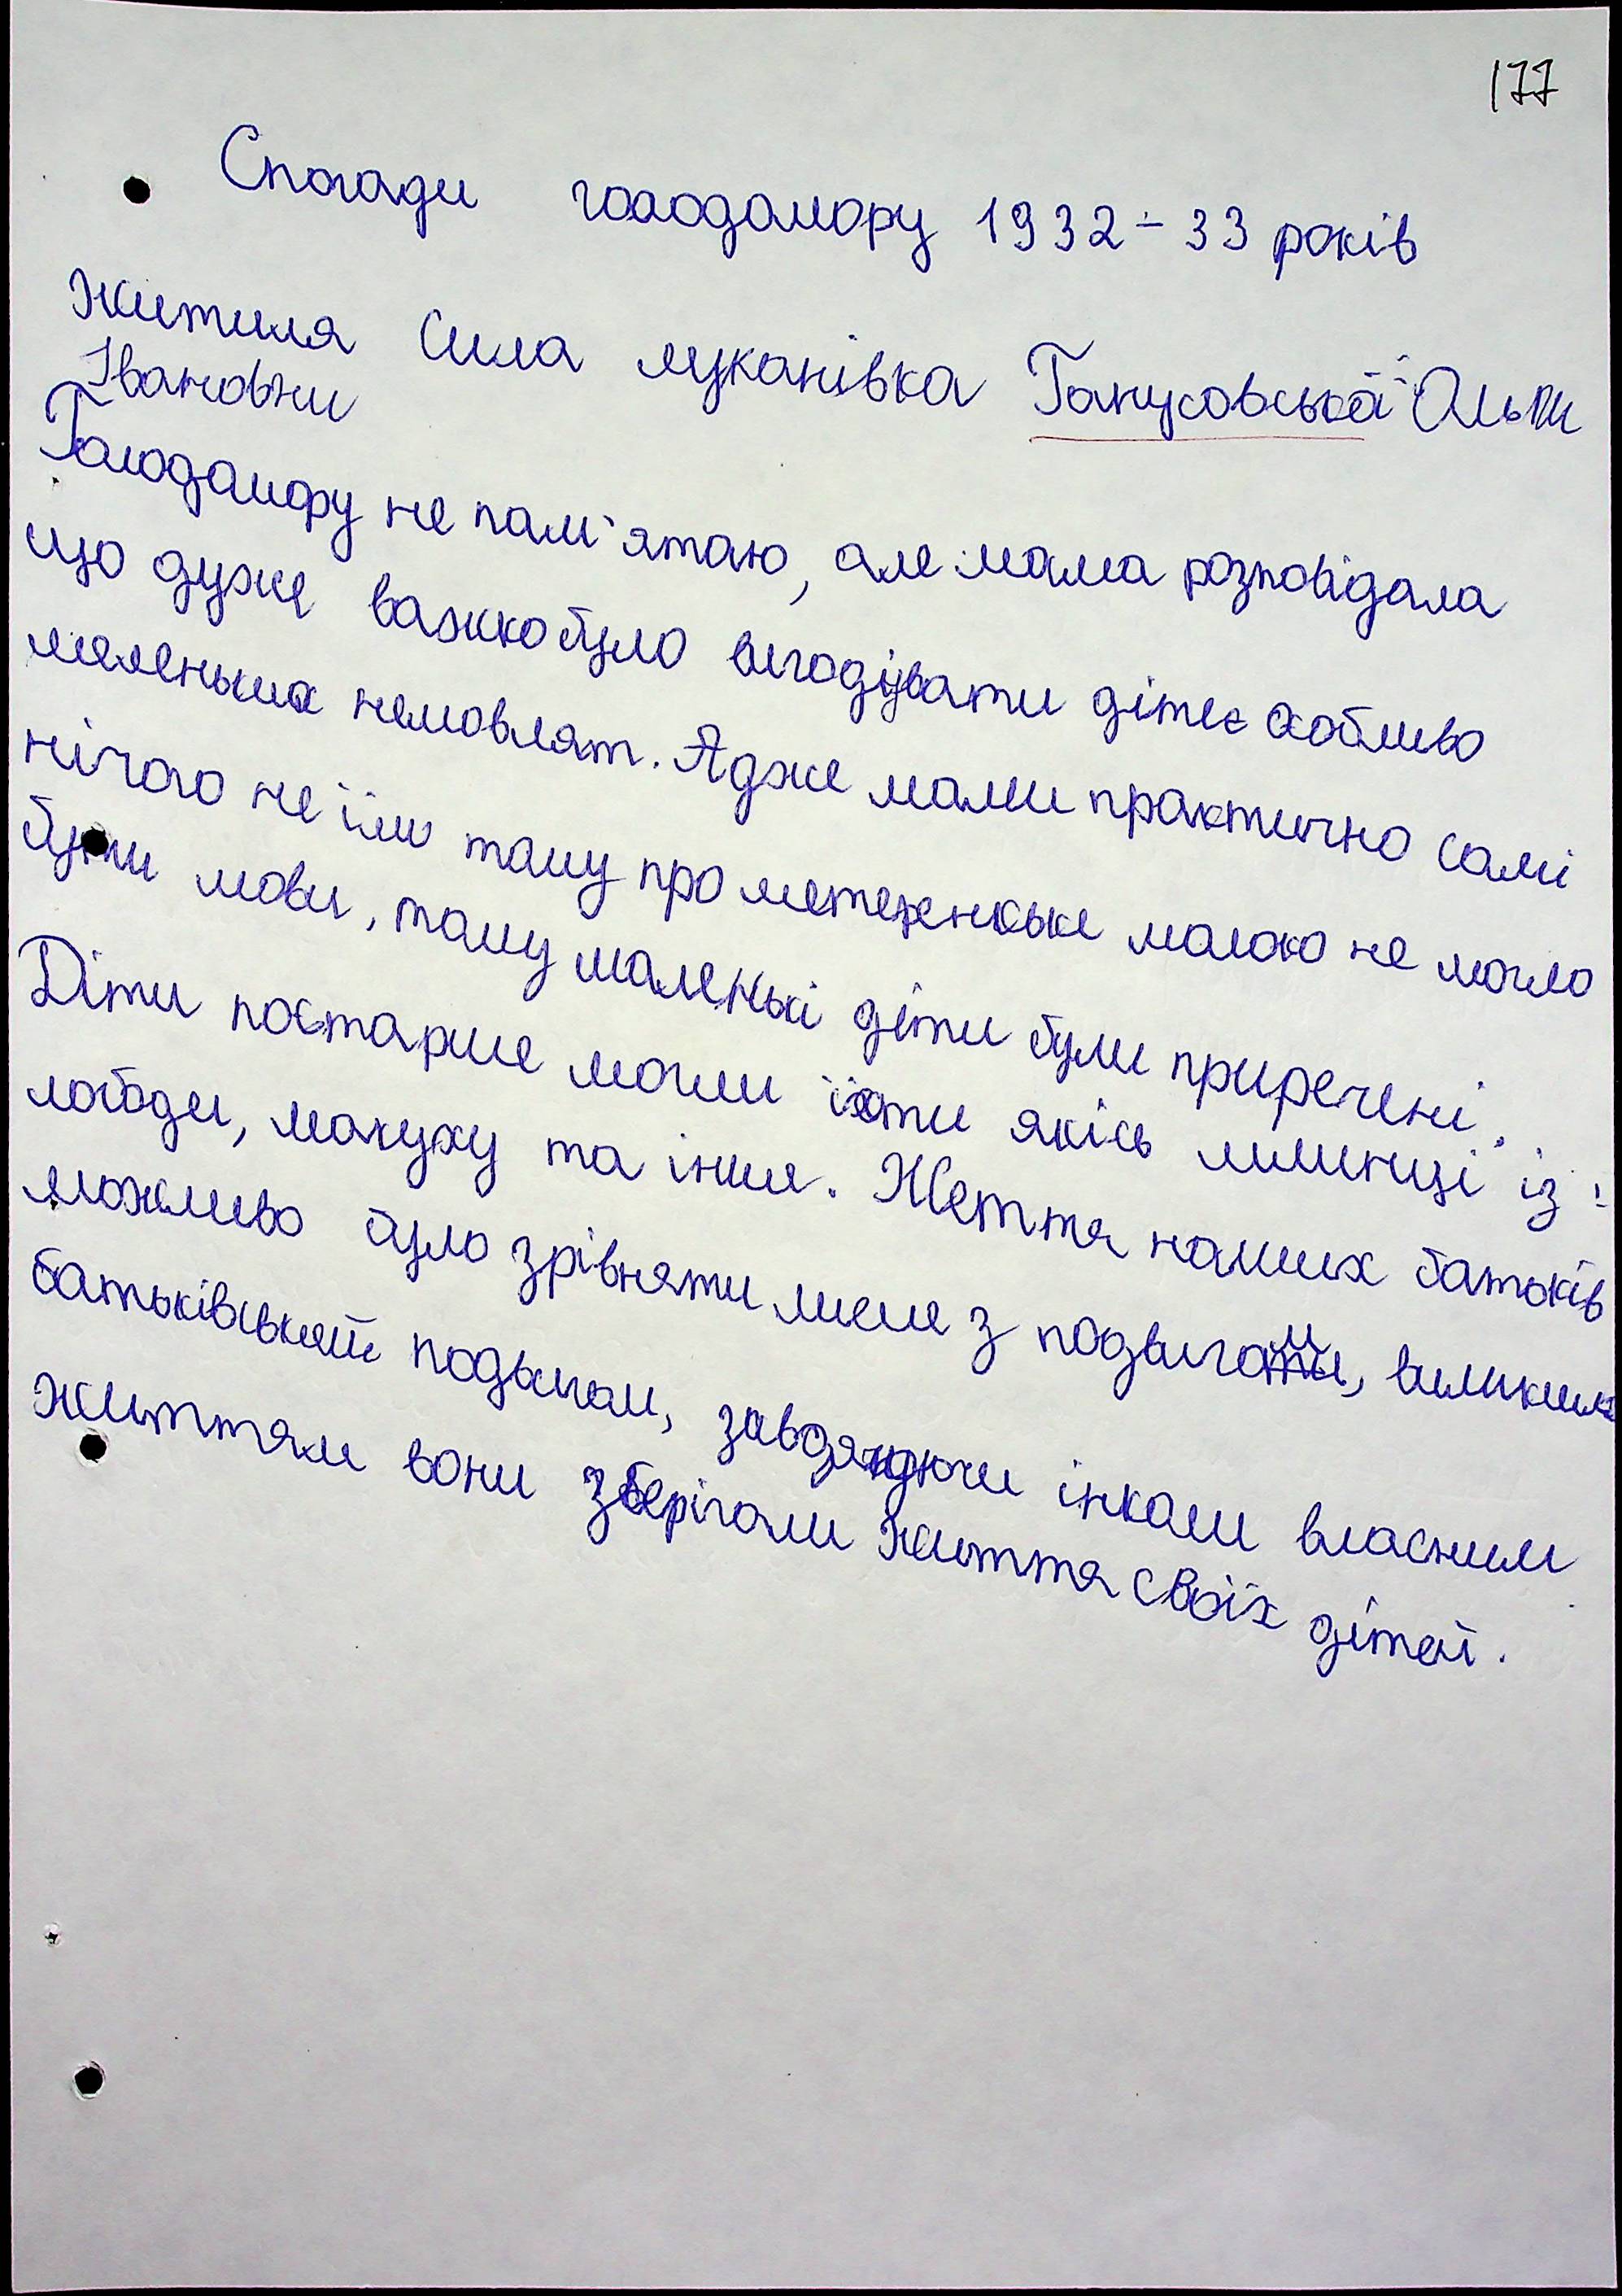 177
Спогади голодомору 1932-33 років
Житиля Села Луканівка Ганусовської Ольги
Івановни
Голодомору не пам'ятаю, але мама розповідала
що дуже важко було вигодувати дітей особливо
маленьких немовлят. Адже мами практично самі
нічого не їли тому про метеренське молоко не могло
бути мови, тому маленькі діти були приречені.
Діти постарше могли їсти якісь млинці із
лободи, макуху та інше. Жеття наших батьків
можливо було зрівняти лише з подвигами, великим
батьківський подвигом, завдячуючи інколи власним
життям вони зберігали життя своїх дітей.